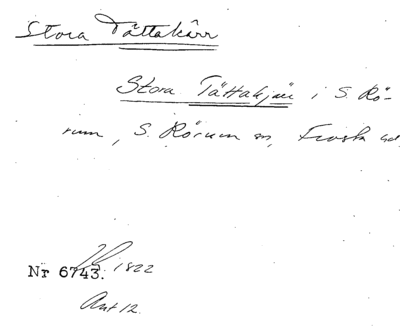 Stora Tåttakärr
Stora Tåttakjär i S. Rö-
rum, S. Rörum sn, Frosta hd,
Nr 6743. 1822
Akt 12.